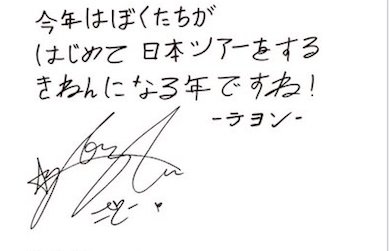 今年はぼくたちが
はじめて日本ツアーをする
きねんになる年ですね!
-テヨン-